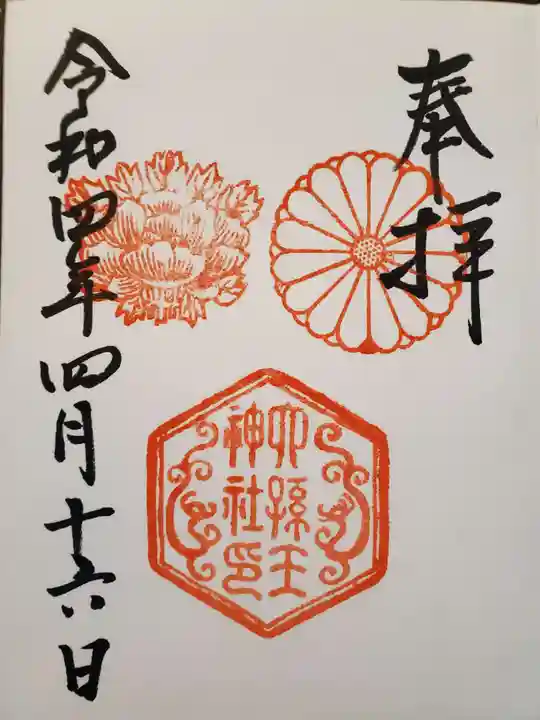 奉拝
六孫王
神社印
令和四年四月十六日